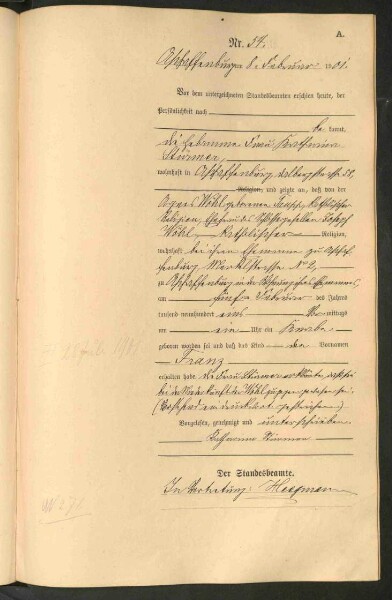 A.
Nr. 54.
Aschaffenburg am 8. Februar 1901.
Vor dem unterzeichneten Standesbeamten erschien heute, der
Persönlichkeit nach
be kannt,
die Hebamme Frau Katharina
Stürmer,
wohnhaft in Aschaffenburg,
Religion, und zeigte an, daß von der
Agnes Wohl gebornen
Religion, Ehefrau des Joseph
Wohl, katholischer Religion,
wohnhaft bei ihrem Ehemanne zu Aschaf-
fenburg, No 2,
zu Aschaffenburg in der Wohnung ihres Ehemannes,
am fünf Februar des Jahres
tausend neunhundert eins Vormittags
um ein Uhr ein Knabe
geboren worden sei und daß das Kind den Vornamen
Franz
erhalten habe. die Frau Stürmer erklärte, daß sie
bei der Niederkunft der Wohl zugegen gewesen sei.
Vorgelesen, genehmigt und unterschrieben
Katharina Stürmer
Der Standesbeamte.
In Vertretung: